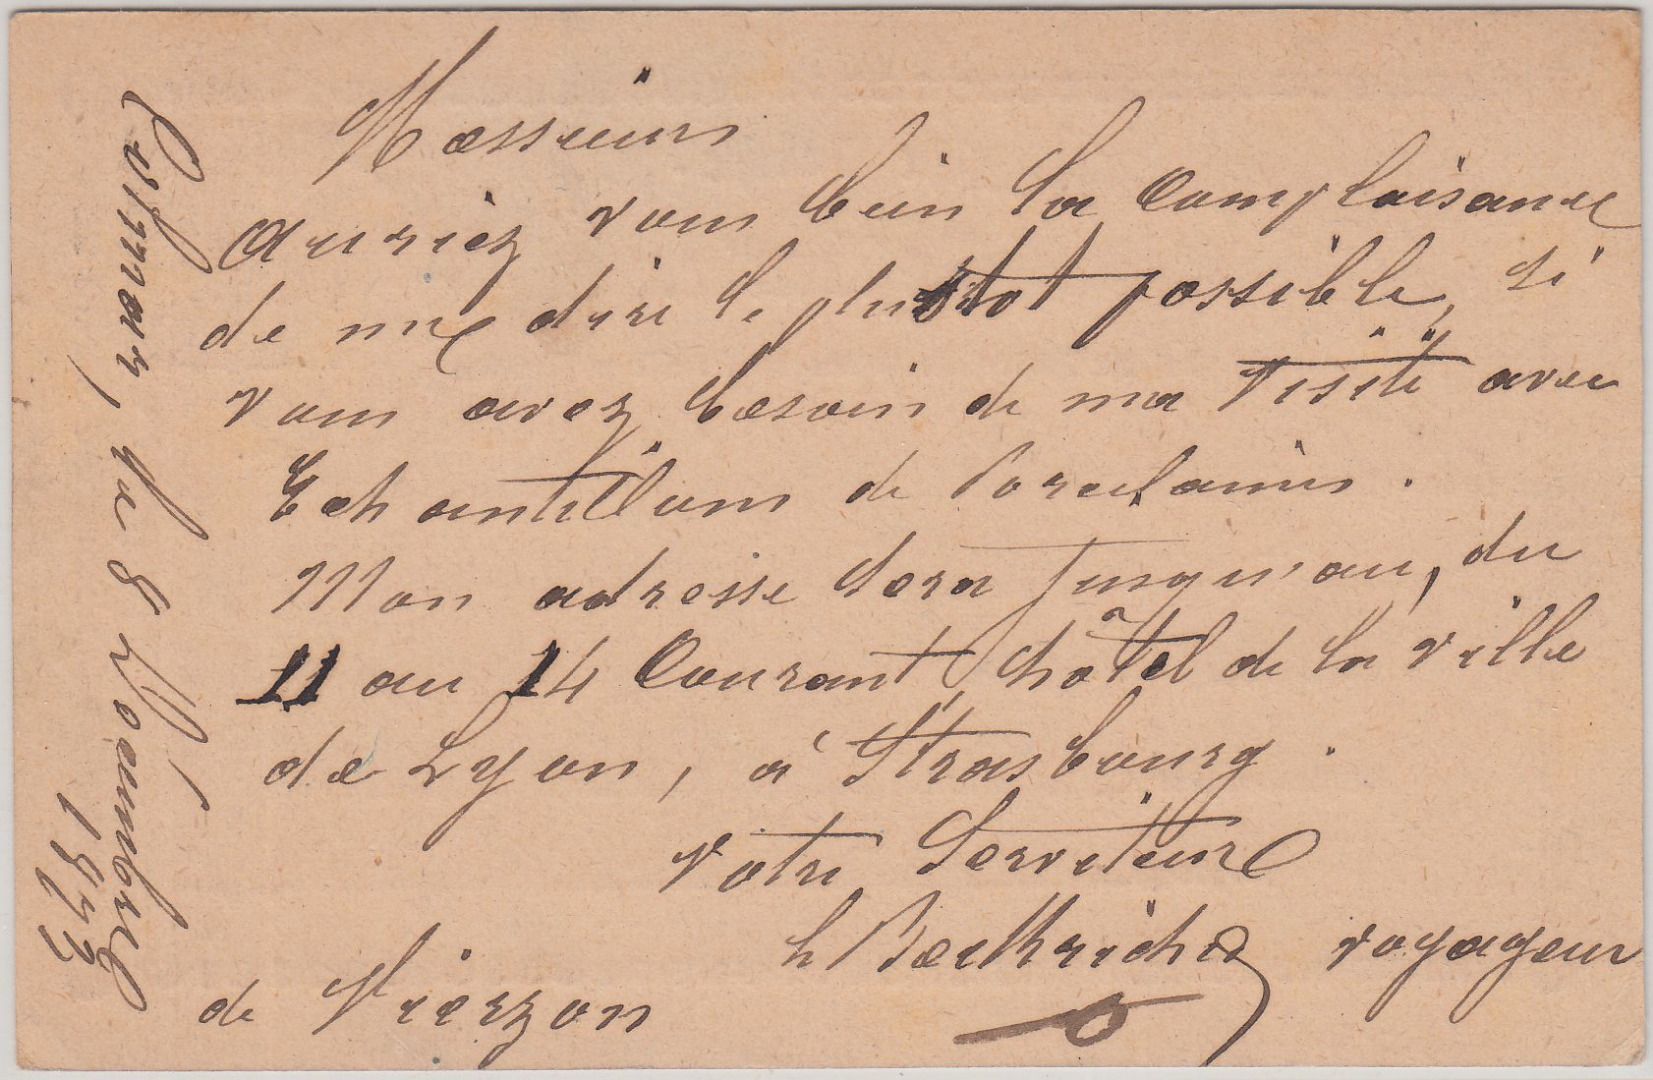 Colmar, le 8 Décembre
1873
Messieurs
Auriez vous bien la Complaisance
de me dire le plustot possible, si
vous avez besoin de ma Visite avec
Echantillons de Porcelaines.
Mon adresse sera Jusqu'au, du
11 au 14 Courant, hôtel de la Ville
de Lyon, à Strasbourg.
Votre Serviteur
voyageur
de Vierzon